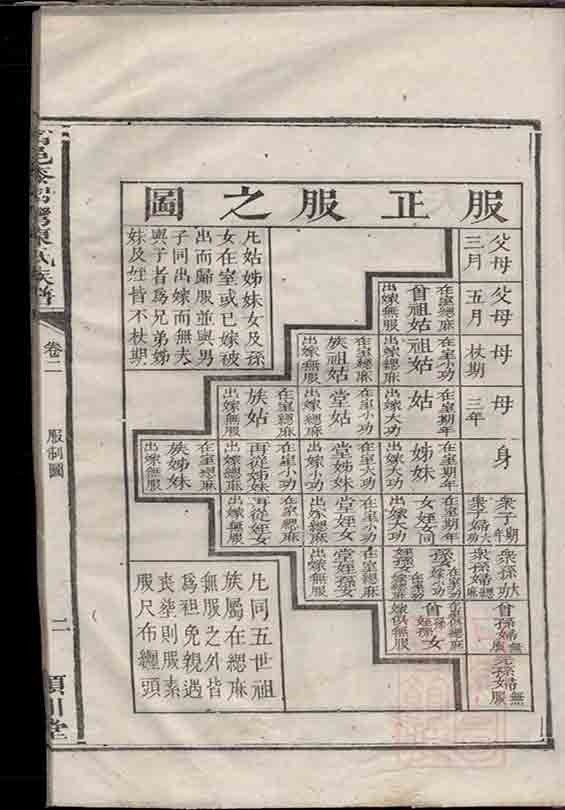 服正服之圖
父母
三月
父母
五月
母
杖期
母
三年
身
衆子期年
衆子婦大功
衆孫大功
衆孫婦緦麻
曾孫婦無服
元孫婦無服
在室緦麻
曾祖姑
出嫁無服
在室小功
祖姑
出嫁緦麻
在室緦麻
族祖姑
出嫁無服
在室期年
姑
出嫁大功
在室小功
堂姑
出嫁緦麻
在室緦麻
族姑
出嫁無服
在室期年
姊妹
出嫁大功
在室大功
堂姊妹
出嫁小功
在室小功
再從姊妹
出嫁緦麻
在室緦麻
族姊妹
出嫁無服
在室期年
女姪女同
出嫁大功
在室小功
堂姪女
出嫁緦麻
在室緦麻
再從姪女
出嫁無服
在室緦麻
堂姪孫女
出嫁無服
凢姑姊妹女及孫
女在室或已嫁被
出而歸服並與男
子同出嫁而無夫
與子者爲兄弟姊
妹及姪皆不杖期
凢同五世祖
族屬在緦麻
無服之外皆
爲袒免親遇
喪塟則服素
服尺布纏頭
陳氏族譜
卷二
服制圖
二
潁川堂